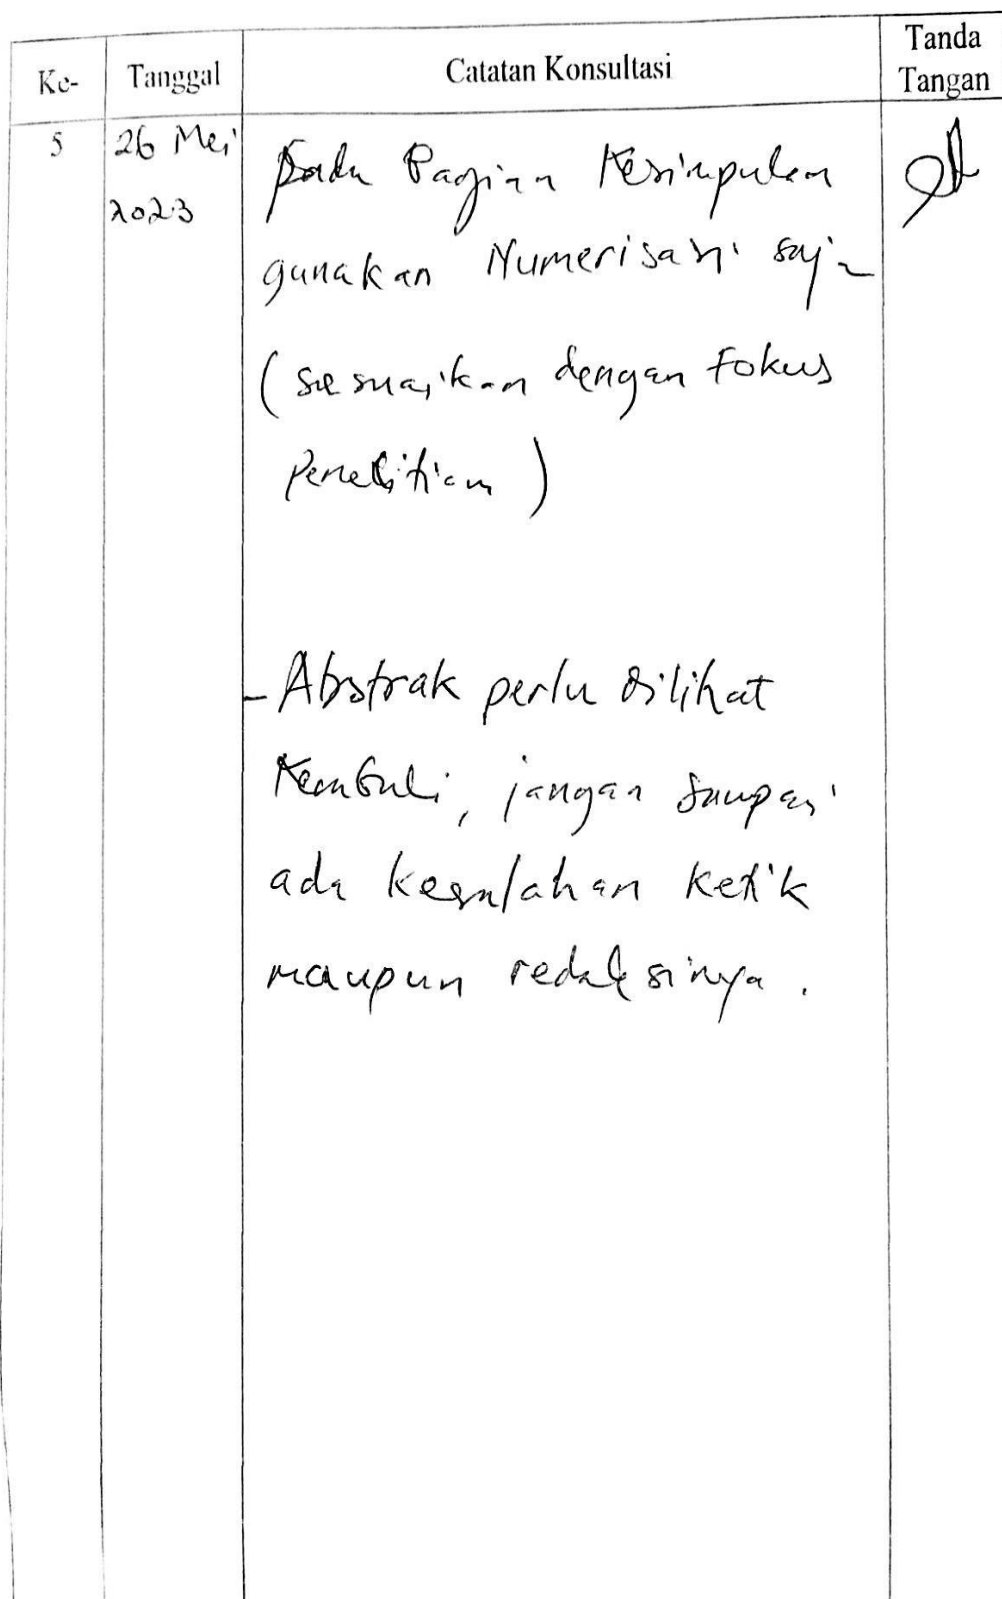 Ke- Tanggal Catatan Konsultasi Tanda Tangan
5 26 Mei 2023
Pada Bagian Kesimpulan
gunakan Numerisasi saja
(sesuaikan dengan Fokus
Penelitian)
- Abstrak perlu dilihat
Kembali, jangan sampai
ada kesalahan ketik
maupun redaksinya.